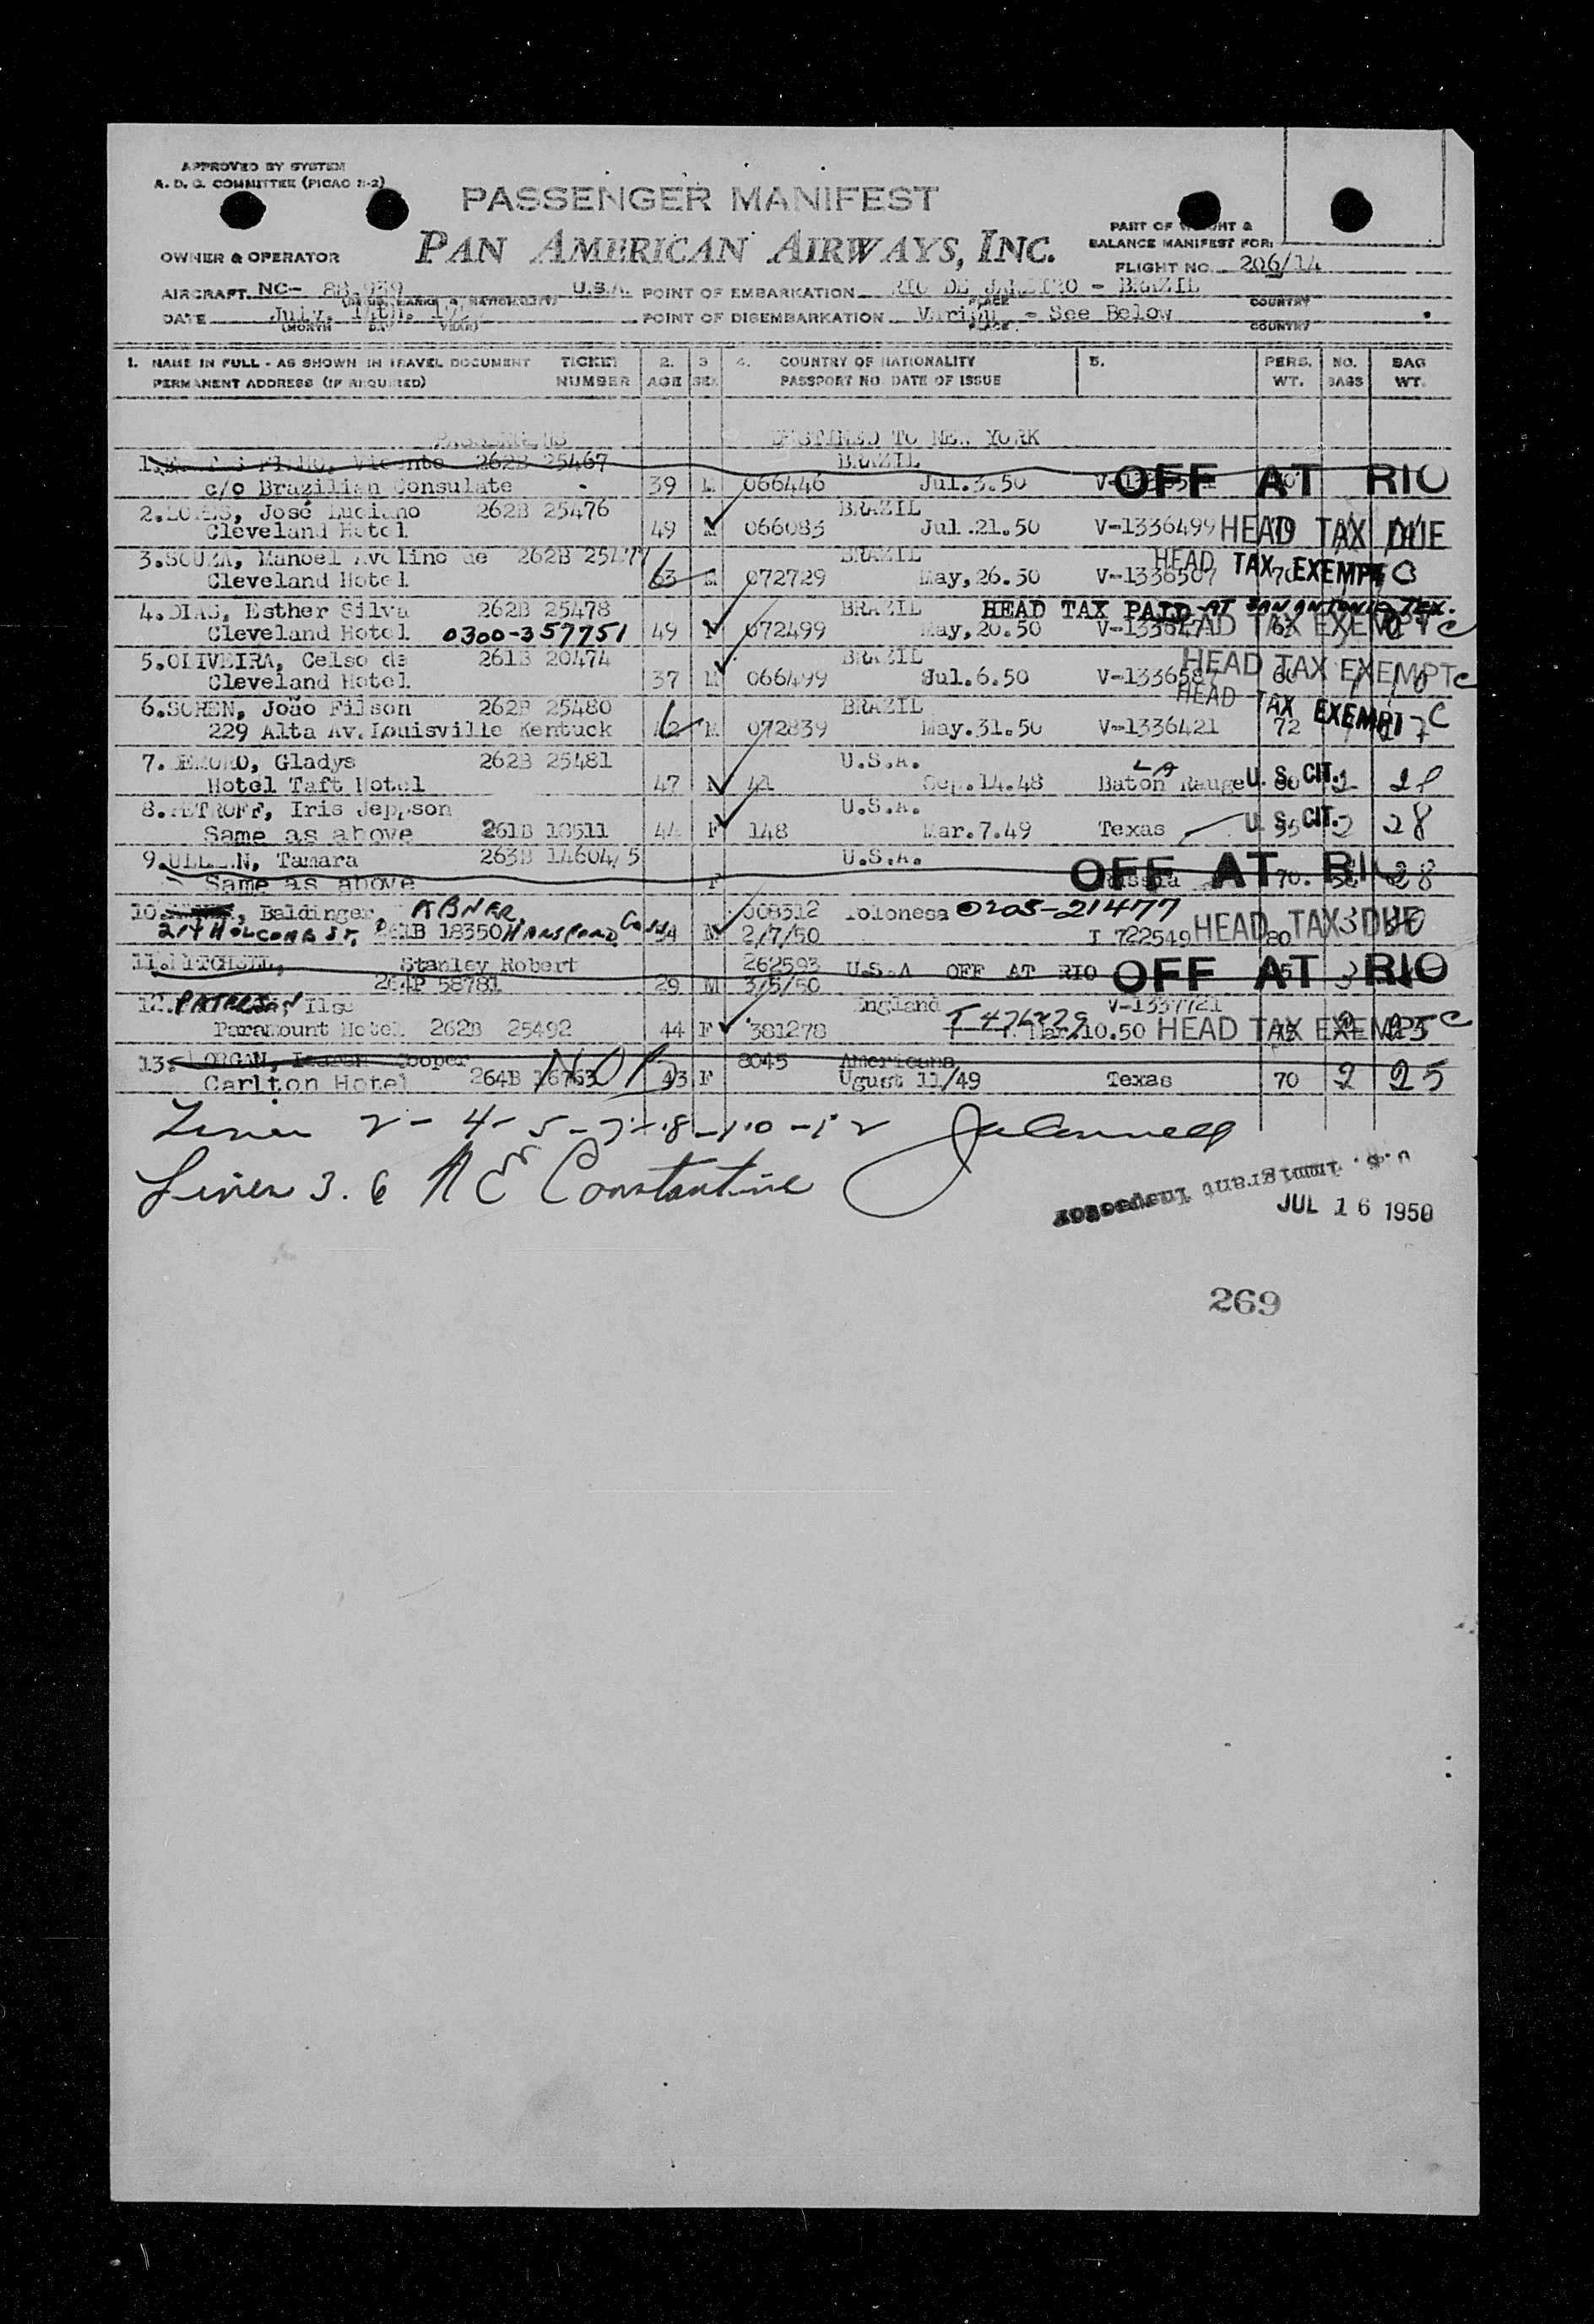 APPROVED BY SYSTEM
A. D. G. COMMITTEE (PICAO
PASSENGER MANIFEST
PAN AMERICAN AIRWAYS, INC.
PART OF WEIGHT &
BALANCE MANIFEST FOR:
OWNER & OPERATOR
FLIGHT NO. 206/14
AIRCRAFT NC- 88 939 U.S.A. POINT OF EMBARKATION RIO DE JANEIRO - BRAZIL
PLACE COUNTRY
DATE July, 14th, POINT OF DISEMBARKATION - See Below
(MONTH DAY YEAR) PLACE COUNTRY
1. NAME IN FULL - AS SHOWN IN TRAVEL DOCUMENT TICKET 2. 3 4. COUNTRY OF NATIONALITY 5. PERS. NO. BAG
PERMANENT ADDRESS (IF REQUIRED) NUMBER AGE SEX PASSPORT NO. DATE OF ISSUE WT. BAGS WT.
PASSENGERS DESTINED TO NEW YORK
1. Vicente 262B 25467 BRAZIL
c/o Brazilian Consulate 39 M 066446 Jul.3.50 OFF AT RIO
2. José Luciano 262B 25476 BRAZIL
Cleveland Hotel 49 M 066083 Jul.21.50 V-1336499 HEAD TAX DUE
3.SOUZA, Manoel Avelino de 262B BRAZIL HEAD TAX EXEMPT C
Cleveland Hotel 63 M 072729 May,26.50 V-1336507 70
4.DIAS, Esther Silva 262B 25478 BRAZIL HEAD TAX PAID AT SAN ANTONIO TEX.
Cleveland Hotel 0300-357751 49 072499 May,20.50 HEAD TAX EXEMPT C
5.OLIVEIRA, Celso de 261B 20474 BRAZIL HEAD TAX EXEMPT C
Cleveland Hotel 37 M 066499 Jul.6.50 V-1336587
6.SOREN, João Filson 262B 25480 BRAZIL HEAD TAX EXEMPT C
229 Alta Av.Louisville Kentuck 42 M 072839 May.31.50 V-1336421 72
7. Gladys 262B 25481 U.S.A. LA
Hotel Taft Hotel 47 41 Sep.14.48 Baton Rauge U. S. CIT. 2
8.PETROFF, Iris Jeppson U.S.A.
Same as above 261B 18511 44 F 148 Mar.7.49 Texas U. S. CIT. 2 28
9. Tamara 263B 14604/5 U.S.A.
Same as above F Russia OFF AT RIO 70. 28
10. , Baldinger, ABNER, 008312 Polonesa 0205-21477
217 HOLCOMB ST, 261B 18350 M 2/7/50 I 722549 HEAD TAX DUE 80
11.MITCHELL, Stanley Robert 262593 U.S.A OFF AT RIO OFF AT RIO
264P 58781 29 M 3/5/50
12. Ilse England V-1337721
Paramount Hotel 262B 25492 44 F 381278 Mar.10.50 HEAD TAX EXEMPT C
13. MORGAN, Cooper 8045 Americana
Carlton Hotel 264B 16763 43 F Ugust 11/49 Texas 70 2 25
Lines 2 - 4 - 5 - 7 - 8 - 10 - 12
Lines 3. 6 N E Constantine
U.S. Immigrant Inspector
JUL 16 1950
269